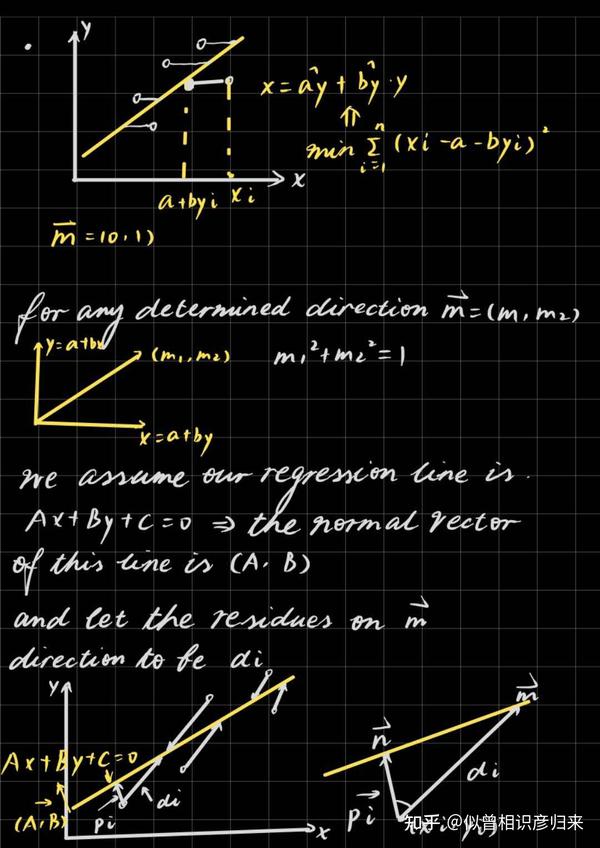 y
x = â_y + b̂_y · y
⇑
min Σ_{i=1}^{n} (xi - a - byi)²
x
a+byi xi
m⃗ = (0, 1)
for any determined direction m⃗ = (m1, m2)
y=a+bx
(m1, m2) m1² + m2² = 1
x=a+by
we assume our regression line is
Ax+By+C=0 ⇒ the normal vector
of this line is (A, B)
and let the residues on m⃗
direction to be di
y
m⃗
n⃗
Ax+By+C=0
di
(A,B)
Pi
di
Pi
x
知乎 @似曾相识彦归来